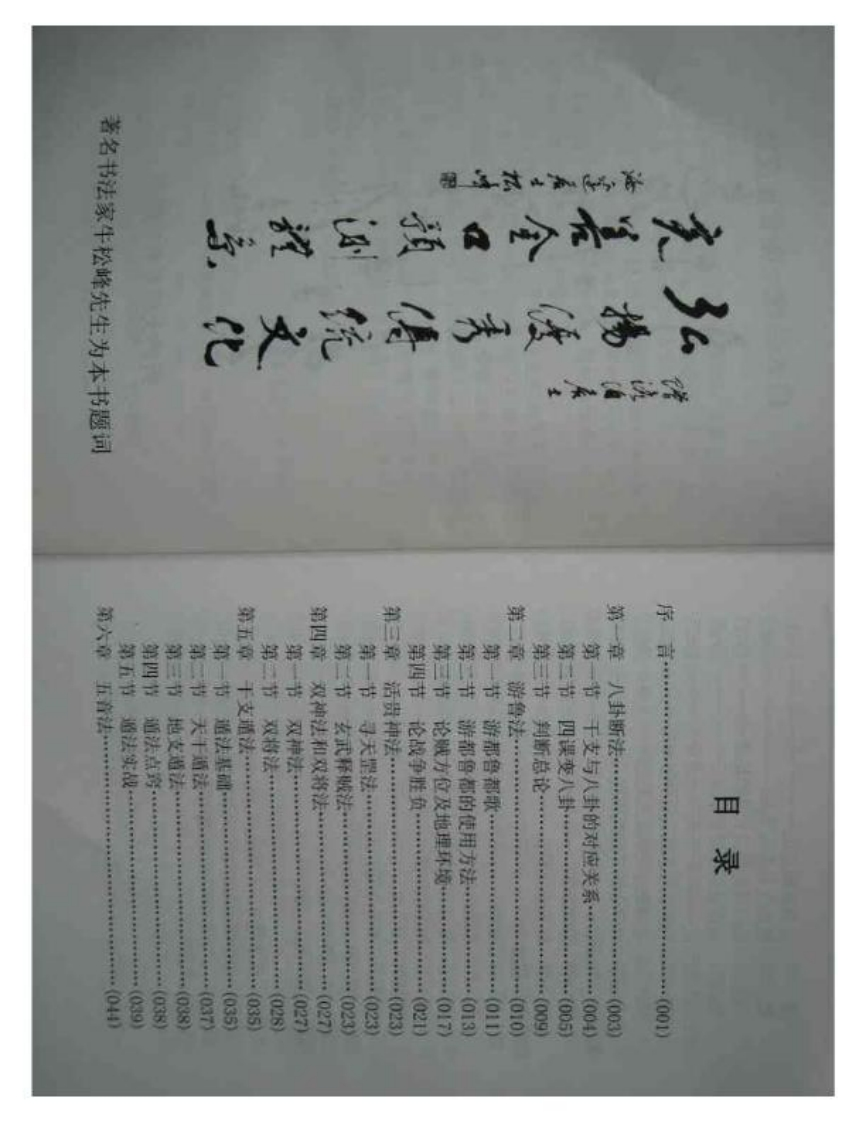 赠淡泊居士
弘揚優秀傳統文化
完善金口預測體系
居士松峰
著名书法家牛松峰先生为本书题词
目 录
序 言……………………(001)
第一章 八卦断法……………………(003)
第一节 干支与八卦的对应关系……………………(004)
第二节 四课变八卦……………………(005)
第三节 判断总论……………………(009)
第二章 游鲁法……………………(010)
第一节 游都鲁都歌……………………(011)
第二节 游都鲁都的使用方法……………………(013)
第三节 论贼方位及地理环境……………………(017)
第四节 论战争胜负……………………(021)
第三章 活贵神法……………………(023)
第一节 寻天罡法……………………(023)
第二节 玄武释贼法……………………(023)
第四章 双神法和双将法……………………(027)
第一节 双神法……………………(027)
第二节 双将法……………………(028)
第五章 干支遁法……………………(035)
第一节 遁法基础……………………(035)
第二节 天干遁法……………………(037)
第三节 地支遁法……………………(038)
第四节 遁法点窍……………………(038)
第五节 遁法实战……………………(039)
第六章 五音法……………………(044)